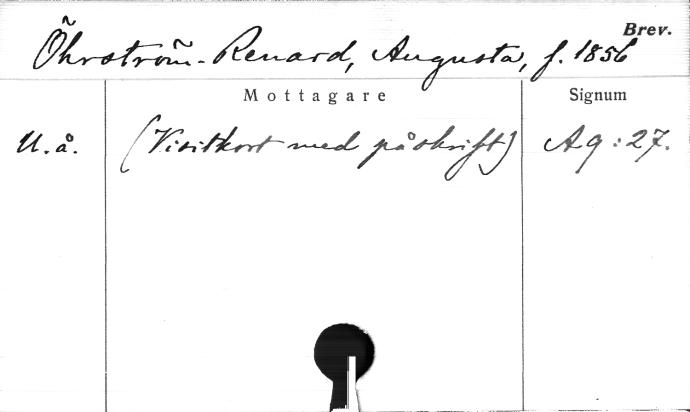 Brev.
Öhrström-Renard, Augusta, f. 1856
Mottagare Signum
U.å. (Visitkort med påskrift) Ag:27.